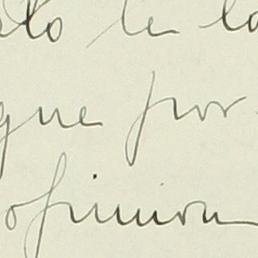 lo le la
que por
opinion